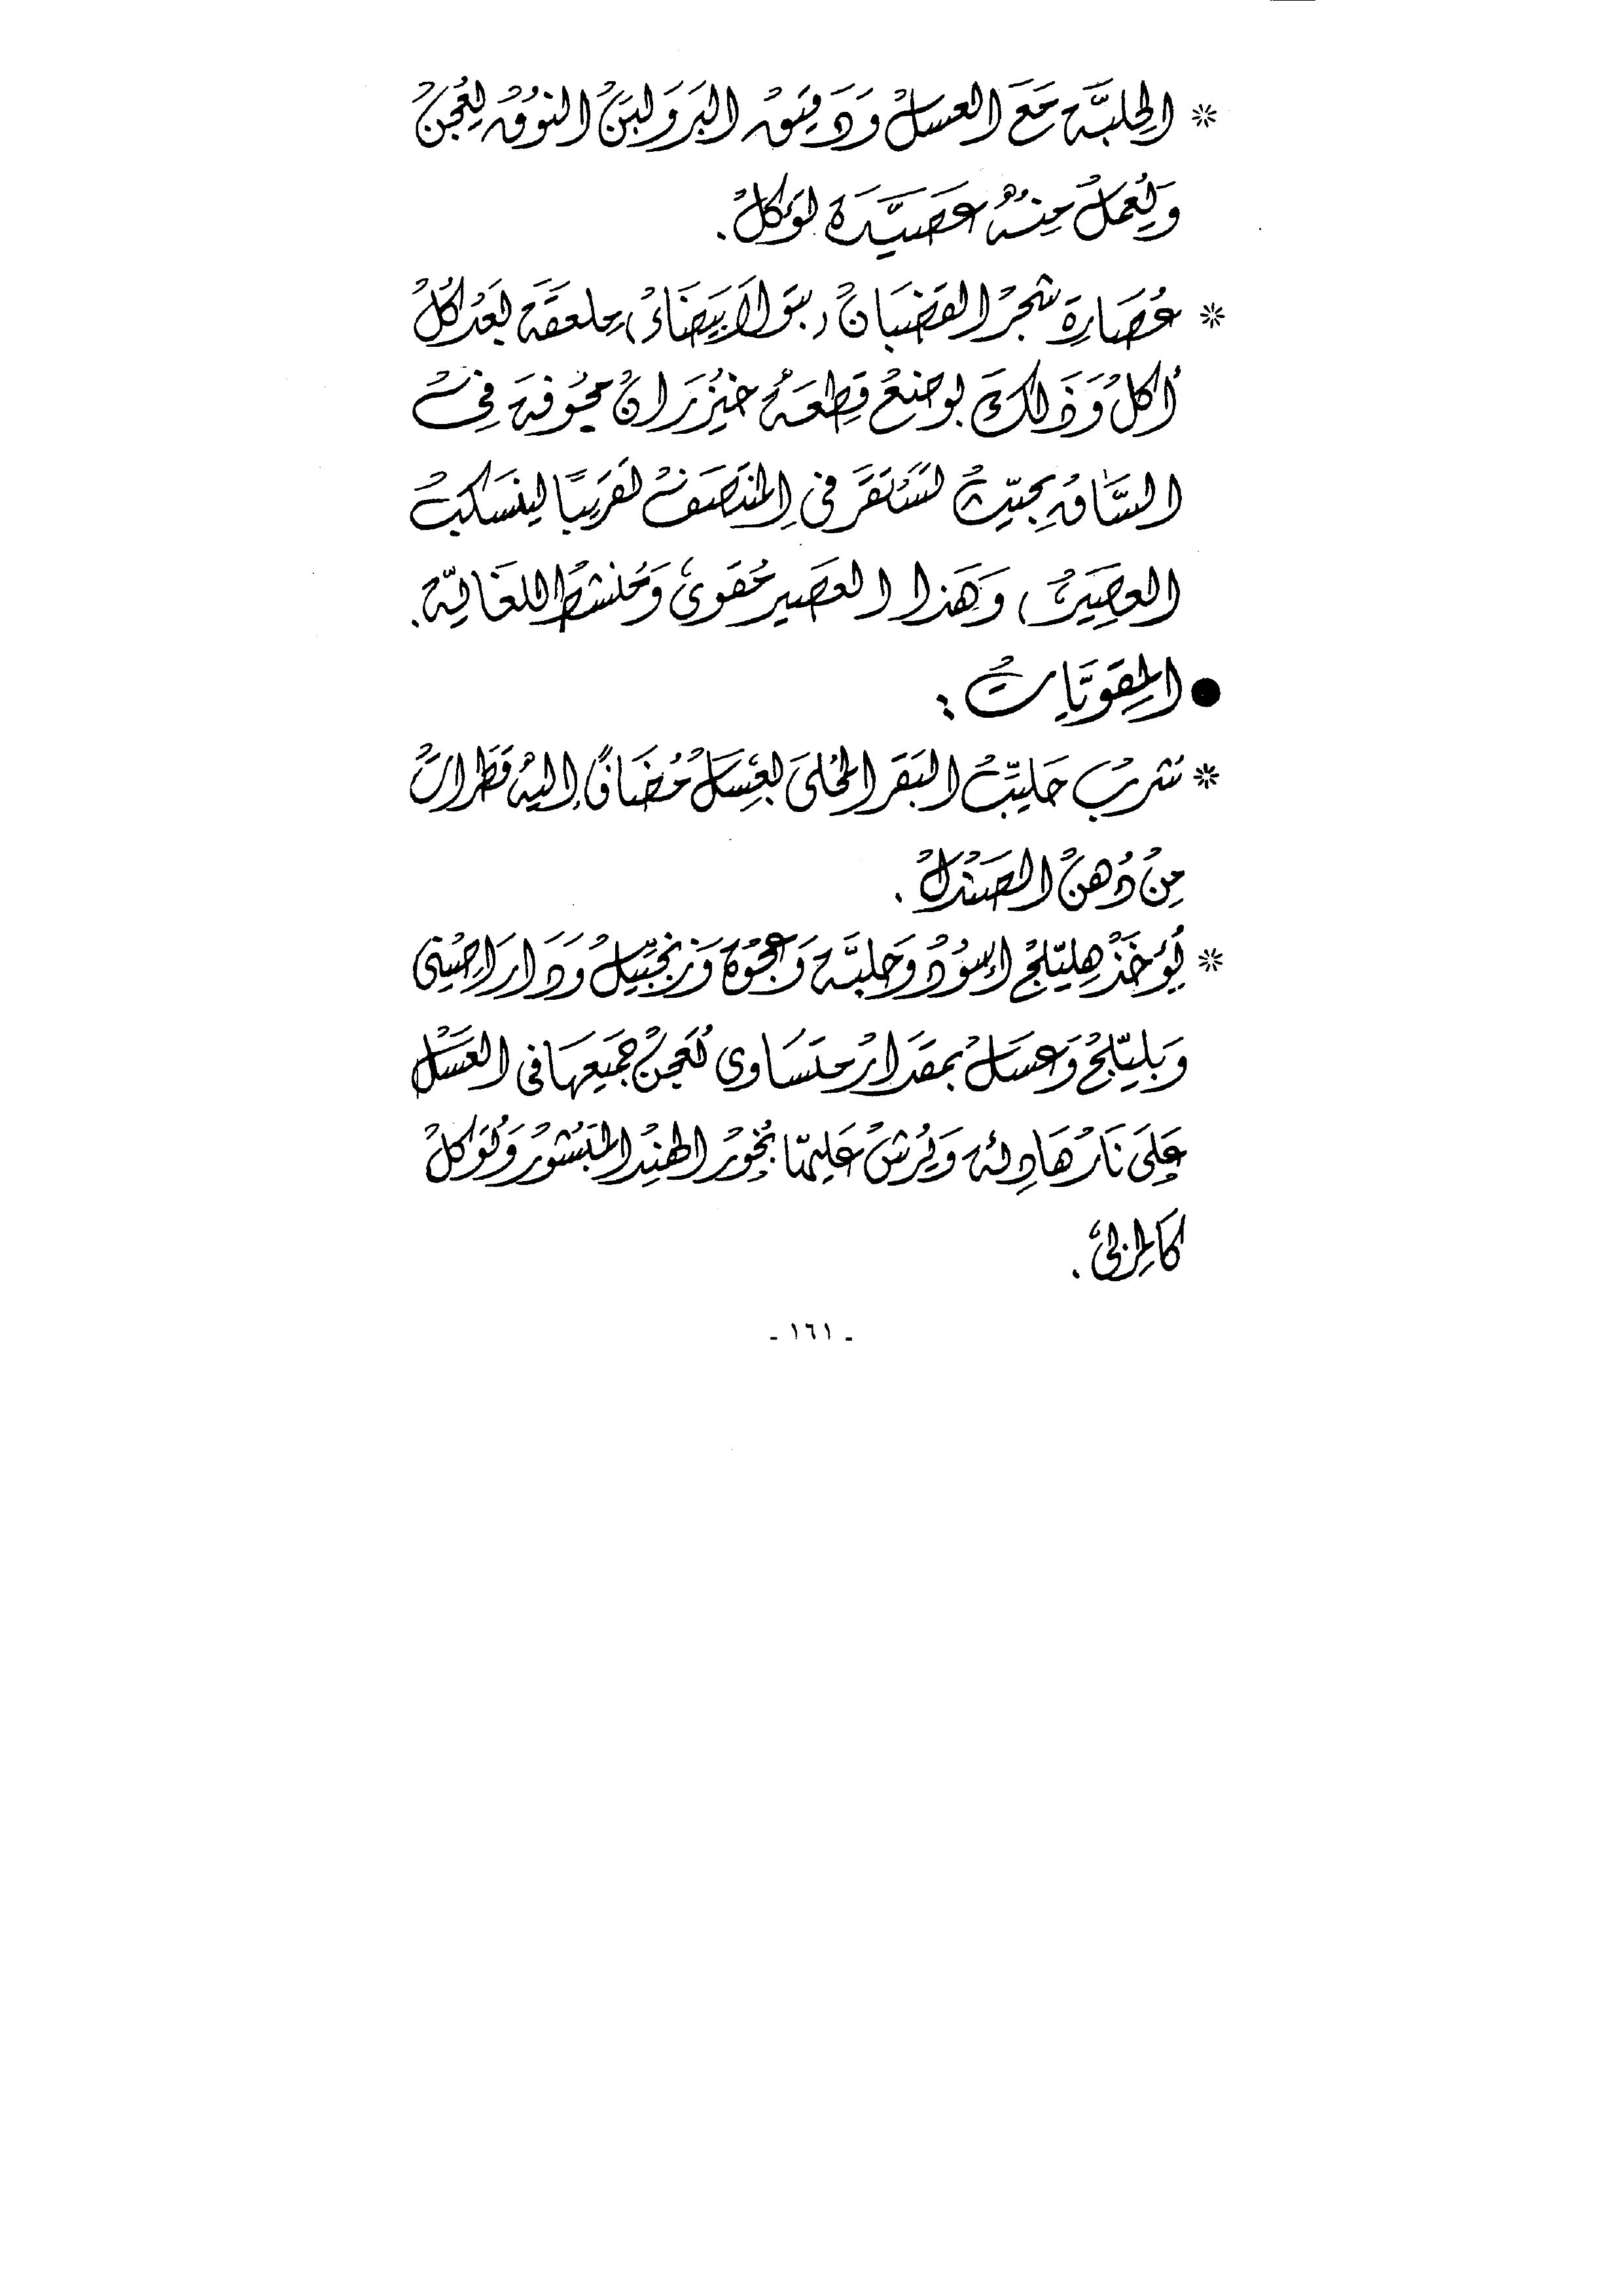 * الحلبة مع العسل ودقيق البر ولبن النوق يعجن
ويعمل منه عصيدة تؤكل.
* عصارة شجر القضبان (بتولا بيضاء) ملعقة بعد كل
أكل وذلك بوضع قطعة خيزران مجوفة في
الساق بحيث تستقر في المنتصف تقريبا لينسكب
العصير، وهذا العصير مقوى ومنشط للغاية.
● المقويات :
* شرب حليب البقر المحلى بعسل مضاف إليه قطرات
من دهن الصندل .
* يؤخذ هليلج إسود وحلبة وعجوة وزنجبيل ودارصينى
وبليلج وعسل بمقدار متساوى تعجن جميعها فى العسل
على نار هادئة ويرش عليها بخور الهند المبشور وتؤكل
كالمربى .
- ١٦١ -